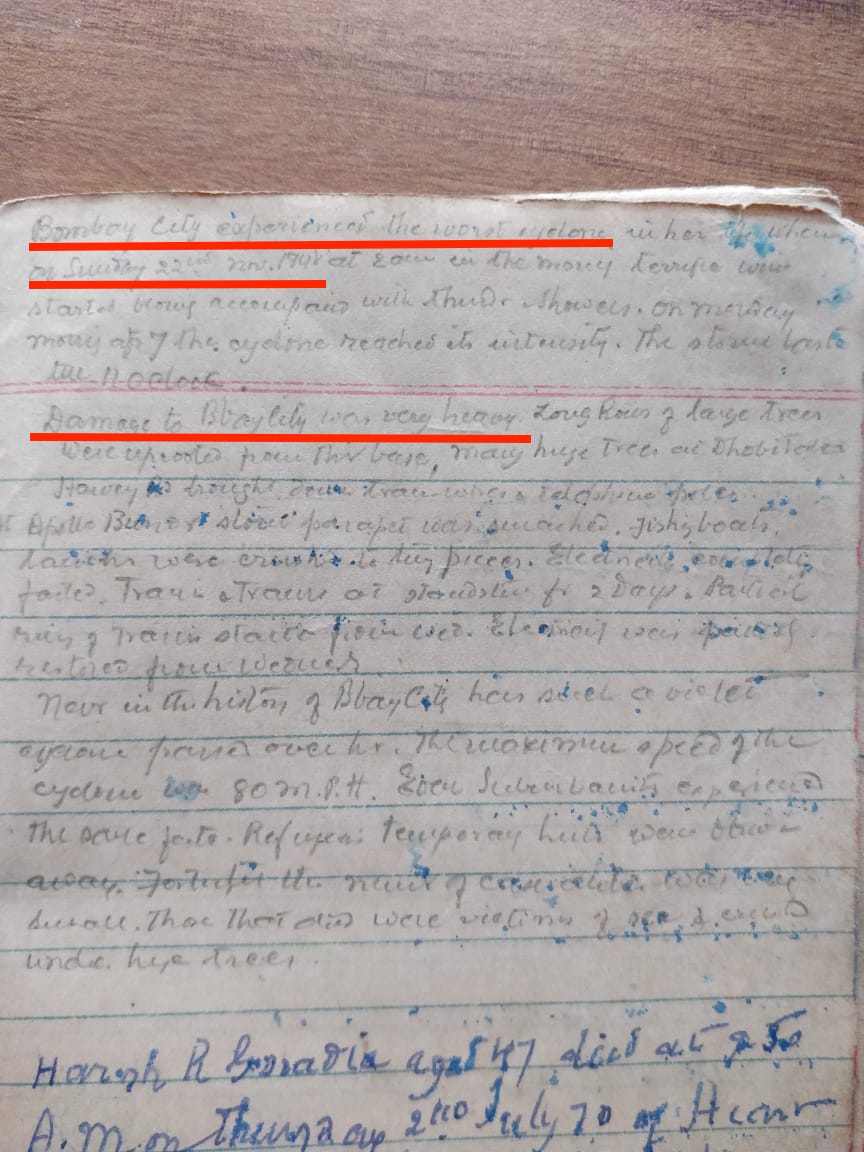 Bombay City experienced the worst cyclone in her when
on Sunday 22nd Nov. 1948 at in the morng terrific wind
started blowing accompand with thundr showers. on monday
morng aft 7 the cyclone reached its intensity. The storm
till 11 Oclock.
Damage to Bbay City was very heavy. Long Rows of large trees
were uprooted from thir base, many huge trees at Dhobi Talao
brought down tram wires & telephone poles.
At Apollo Bundr stone parapet was smashed. Fishg boats,
were crushd to tiny pieces. Electricity
failed. Trams & Trains at standstill fr 2 Days. Partial
rung of Trains started from wed. Electricity was partly
restored from
Nevr in the history of Bbay City has such a violet
cyclone passed over hr. The maximum speed of the
cyclone was 80 M.P.H. Even experienced
the same fate. Refugees temporay huts were blown
away. the numr of was very
small. Those that died were victims of sea & crushd
undr huge trees.
Harsh R aged 47 died at 2 50
A.M on Thursday 2nd July 70 of